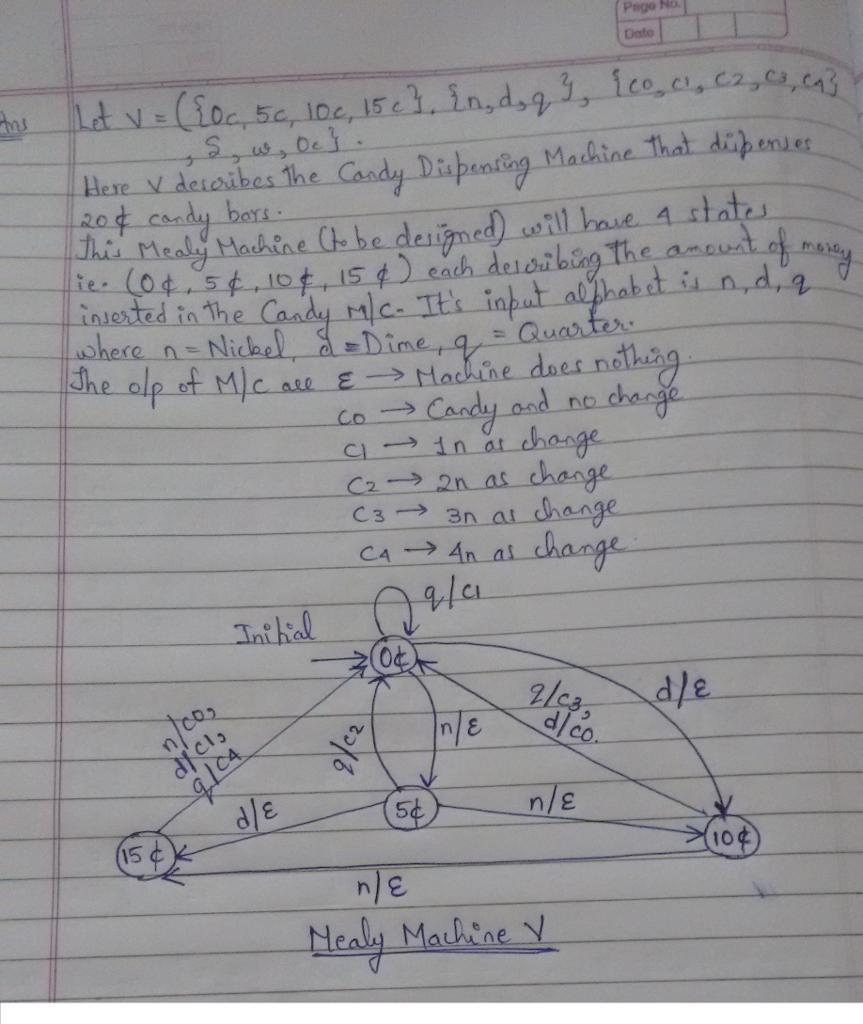 Page No.
Date
Ans Let V = ({0c, 5c, 10c, 15c}, {n, d, q}, {c0, c1, c2, c3, c4}
, S, w, 0c}.
Here V describes the Candy Dispensing Machine That dispenses
20¢ candy bars.
This Mealy Machine (to be designed) will have 4 states
ie. (0¢, 5¢, 10¢, 15¢) each describing the amount of money
inserted in the Candy M/C. It's input alphabet is n, d, q
where n = Nickel, d = Dime, q = Quarter.
The o/p of M/C are ε → Machine does nothing.
C0 → Candy and no change
C1 → 1n as change
C2 → 2n as change
C3 → 3n as change
C4 → 4n as change.
q/C1
Initial
0¢
n/C0,
d/C1,
q/C4
q/C2
n/ε
q/C3,
d/C0.
d/ε
d/ε
5¢
n/ε
15¢
10¢
n/ε
Mealy Machine V